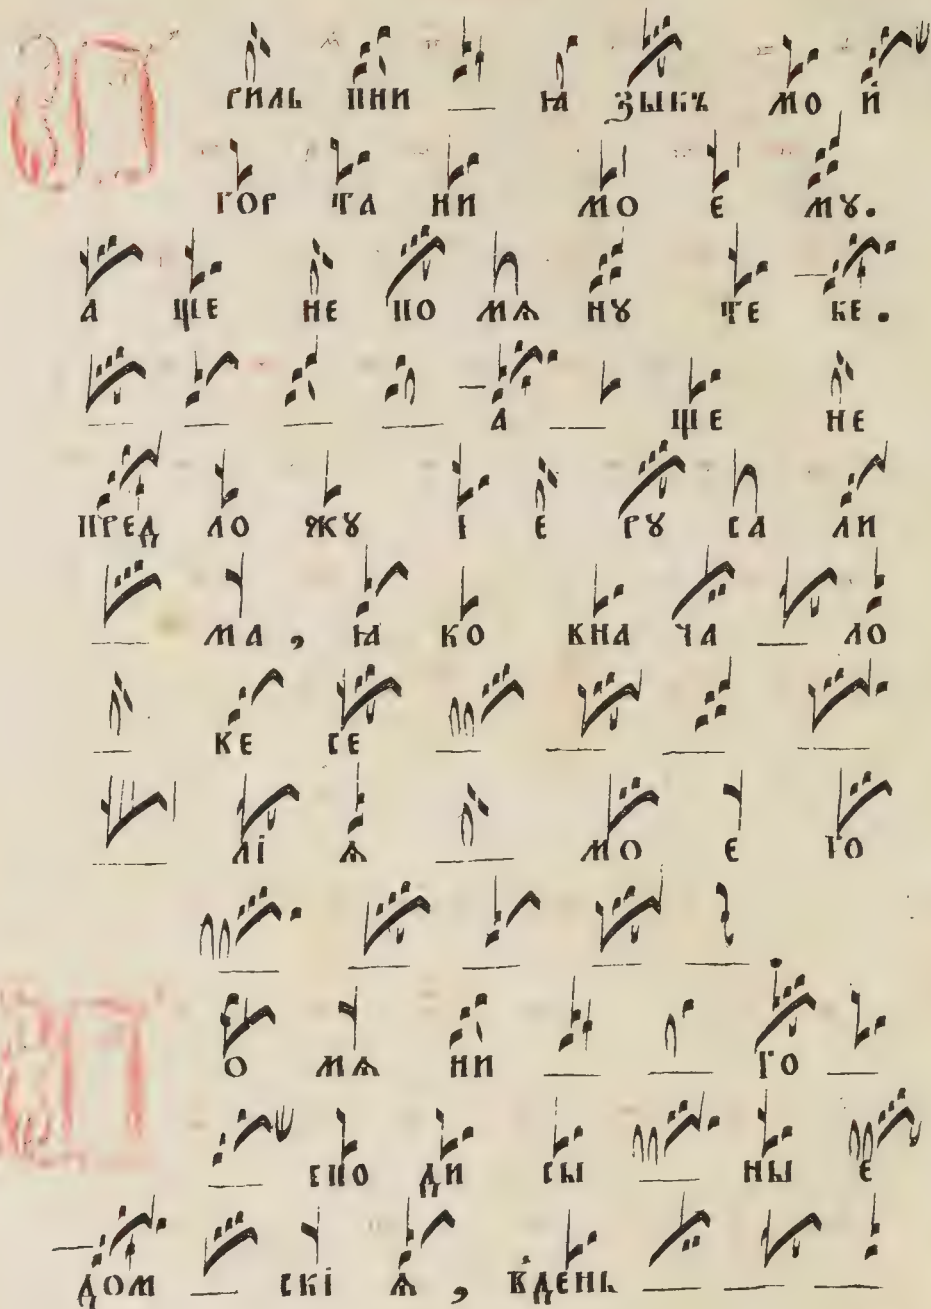 П риль пни ꙗ зыкъ мо й
гор та ни мо е мꙋ.
а ще не по мѧ нꙋ те бе.
а ще не
пред ло жꙋ і е рꙋ са ли
ма, ꙗ ко вна ча ло
ве се
лі ѧ мо е го
П о мѧ ни го
спо ди сы ны е
дом скі ѧ, вдень